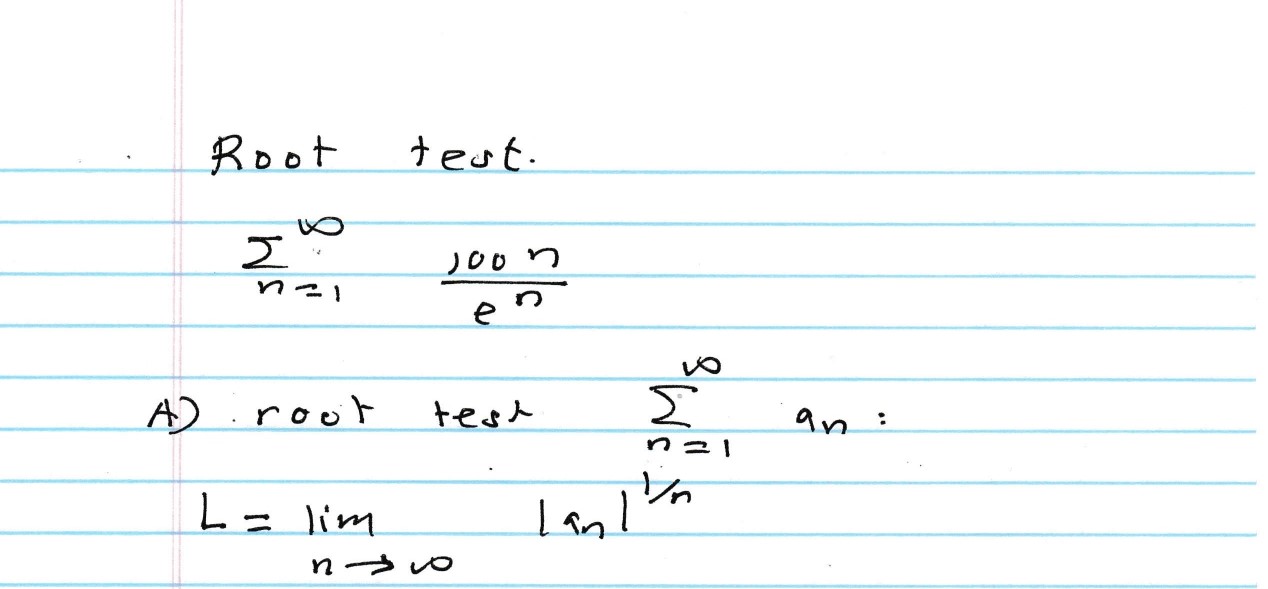 Root test.
∑_{n=1}^{∞} 100n/e^n
A) root test ∑_{n=1}^{∞} a_n :
L = lim_{n→∞} |a_n|^{1/n}